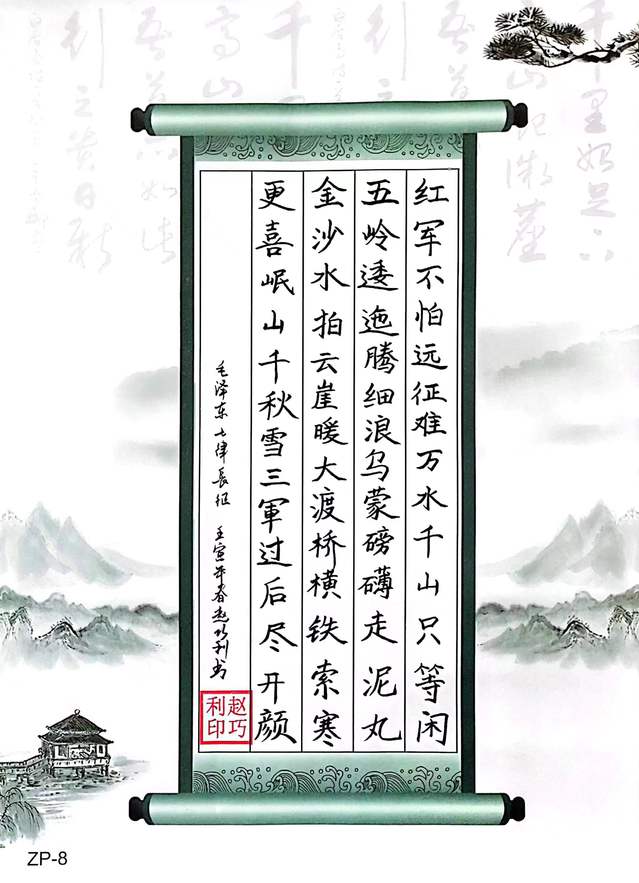 红军不怕远征难万水千山只等闲
五岭逶迤腾细浪乌蒙磅礴走泥丸
金沙水拍云崖暖大渡桥横铁索寒
更喜岷山千秋雪三軍过后尽开颜
毛泽东七律長征 壬寅年春赵巧利书
赵巧利印
ZP-8